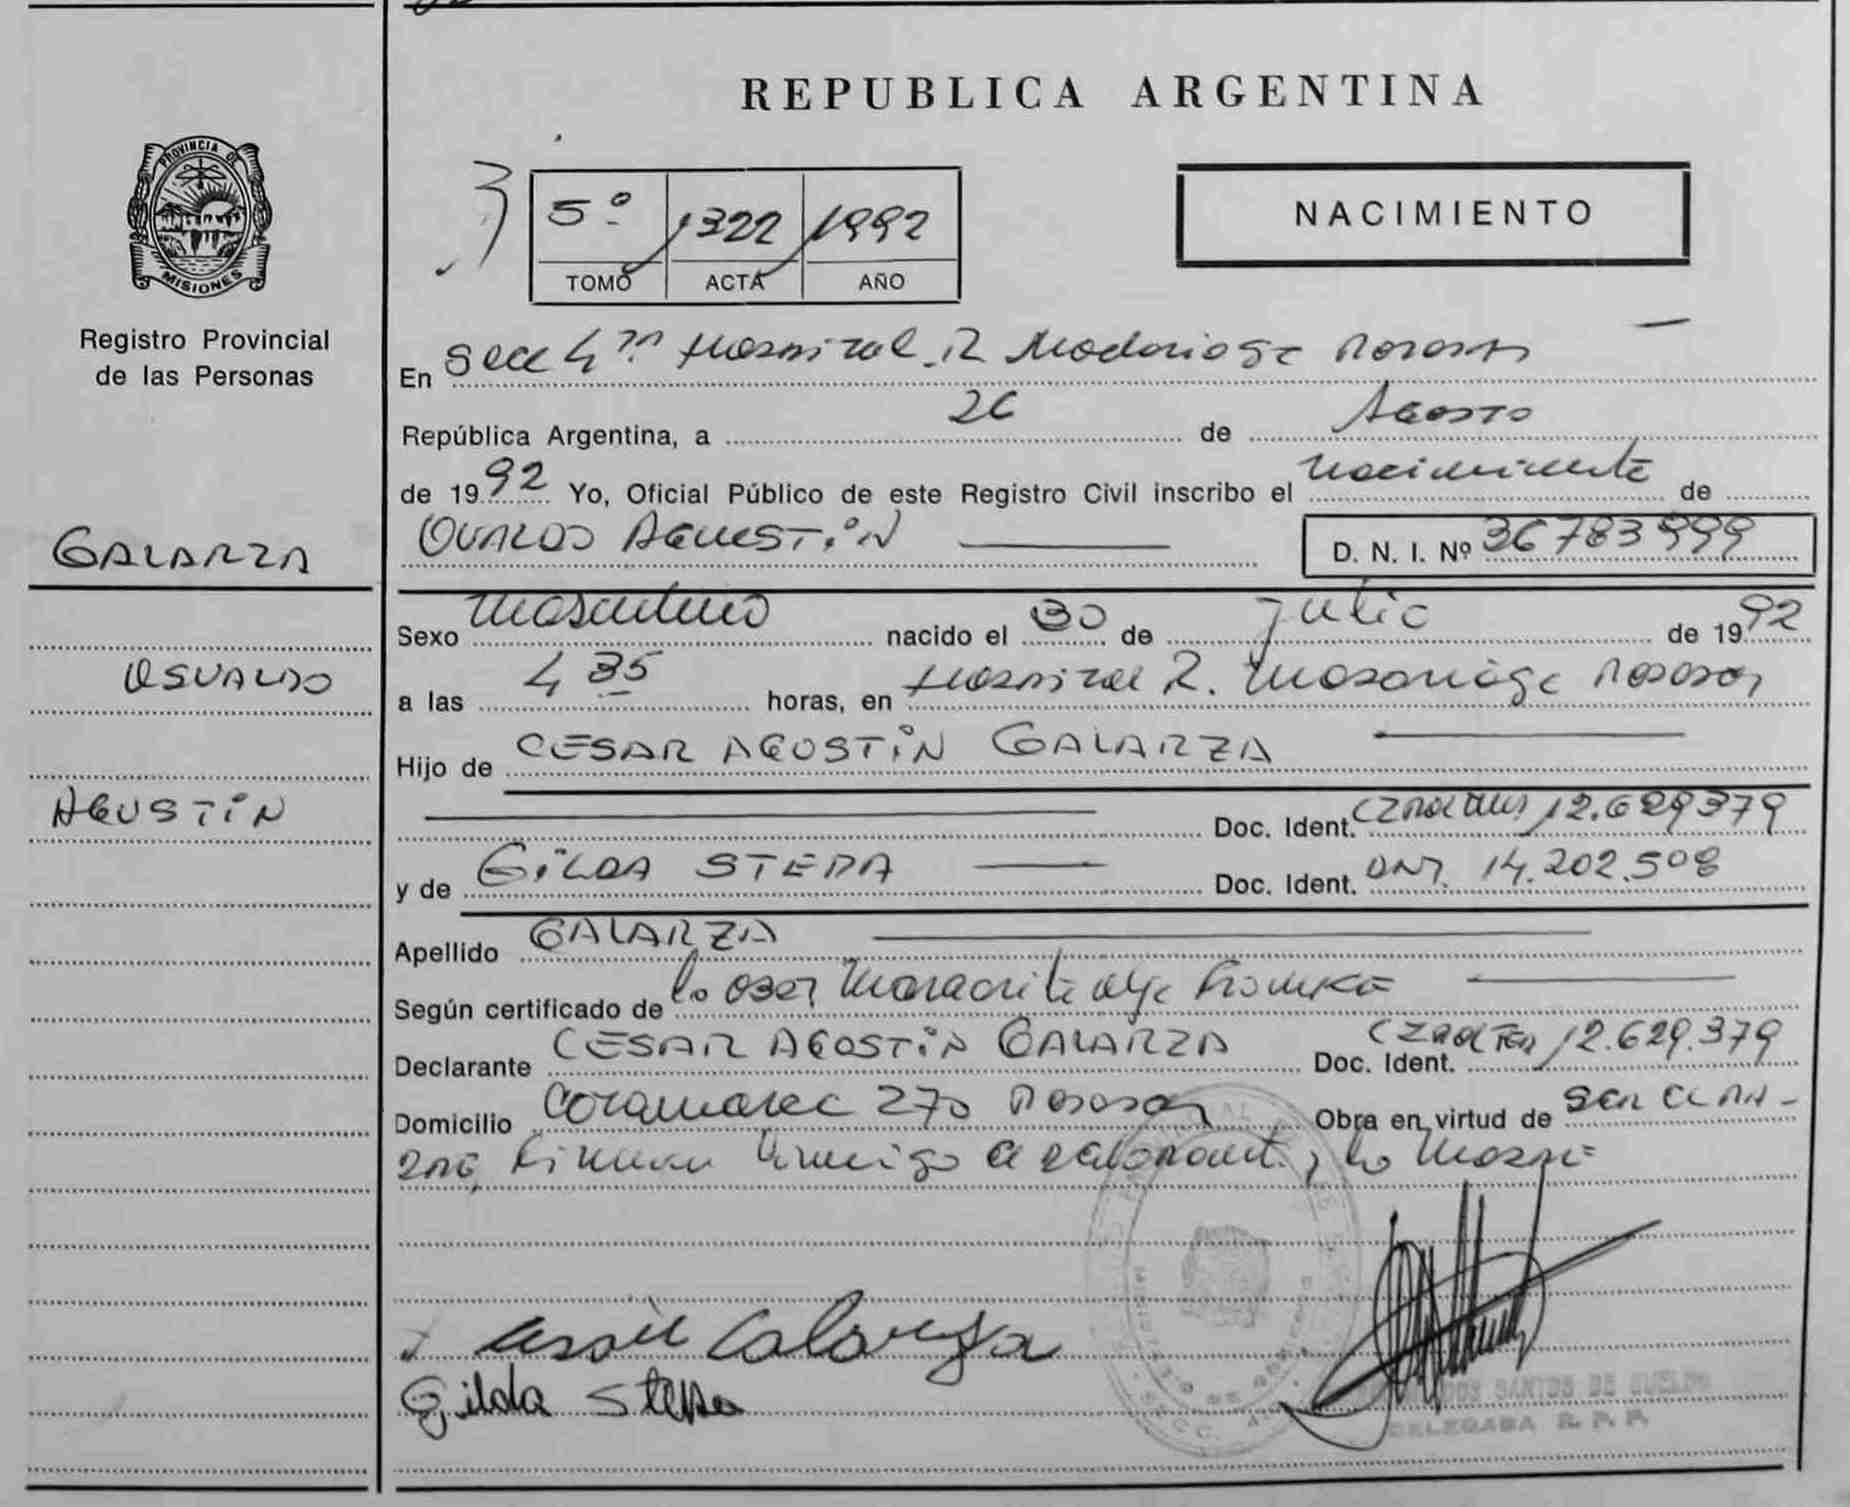 REPUBLICA ARGENTINA
PROVINCIA DE MISIONES
Registro Provincial
de las Personas
5º 1322 1992
TOMO ACTA AÑO
NACIMIENTO
En Secc 4ta Hospital R Madariaga Posadas
República Argentina, a 26 de Agosto
de 1992 Yo, Oficial Público de este Registro Civil inscribo el nacimiento de
GALARZA
OSVALDO AGUSTIN D. N. I. Nº 36783999
Sexo masculino nacido el 30 de Julio de 1992
OSVALDO
a las 4 35 horas, en Hospital R. Madariaga Posadas
Hijo de CESAR AGOSTIN GALARZA
AGUSTIN
Doc. Ident. 12.629379
y de GILDA STEPA Doc. Ident. DNI. 14.202.508
Apellido GALARZA
Según certificado de la Margarita
Declarante CESAR AGOSTIN GALARZA Doc. Ident. 12.629.379
Domicilio 270 Posadas Obra en virtud de ser el pa-
dre, Firman conmigo el declarante y la Madre
Galarza
Gilda Stepa
DOS SANTOS DE
DELEGADA R. P. P.